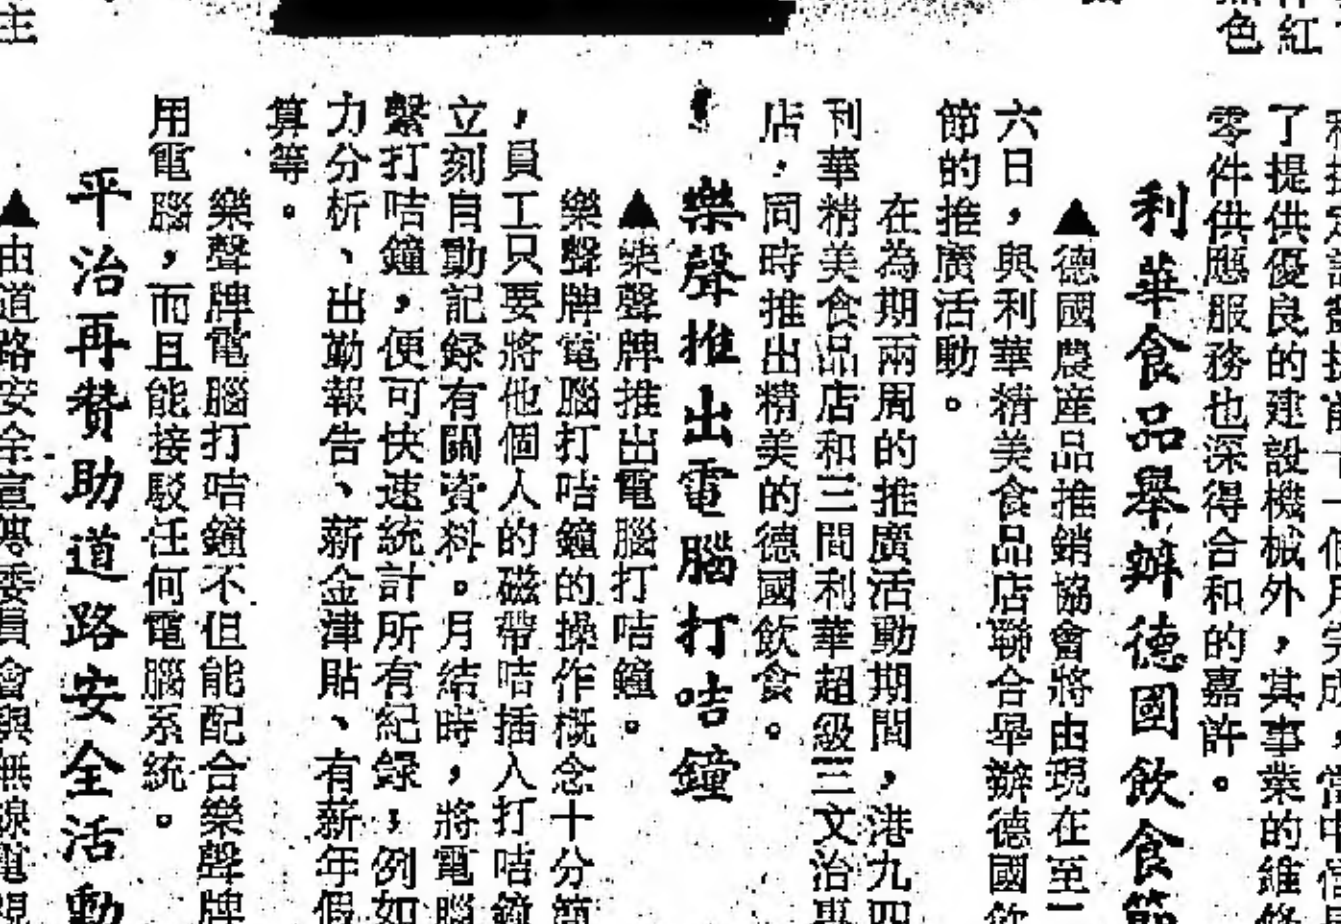 件紅
色
主
了提供優良的建設機械外，其事業的維
零件供應服務也深得合和的嘉許。
利華食品舉辦德國飲食節
▲德國農產品推銷協會將由現在至
六日，與利華精美食品店聯合舉辦德國飲
節的推廣活動。
在為期兩周的推廣活動期間，港九四
利華精美食品店和三間利華超級三文治專
店，同時推出精美的德國飲食。
樂聲推出電腦打咭鐘
▲樂聲牌推出電腦打咭鐘。
樂聲牌電腦打咭鐘的操作概念十分簡
，員工只要將他個人的磁帶咭插入打咭鐘
立刻自動記錄有關資料。月結時，將電腦
繫打咭鐘，便可快速統計所有紀錄，例如
力分析、出勤報告、薪金津貼、有薪年假
算等。
樂聲牌電腦打咭鐘不但能配合樂聲牌
用電腦，而且能接駁任何電腦系統。
平治再贊助道路安全活動
▲由道路安全宣傳委員會與無線電視